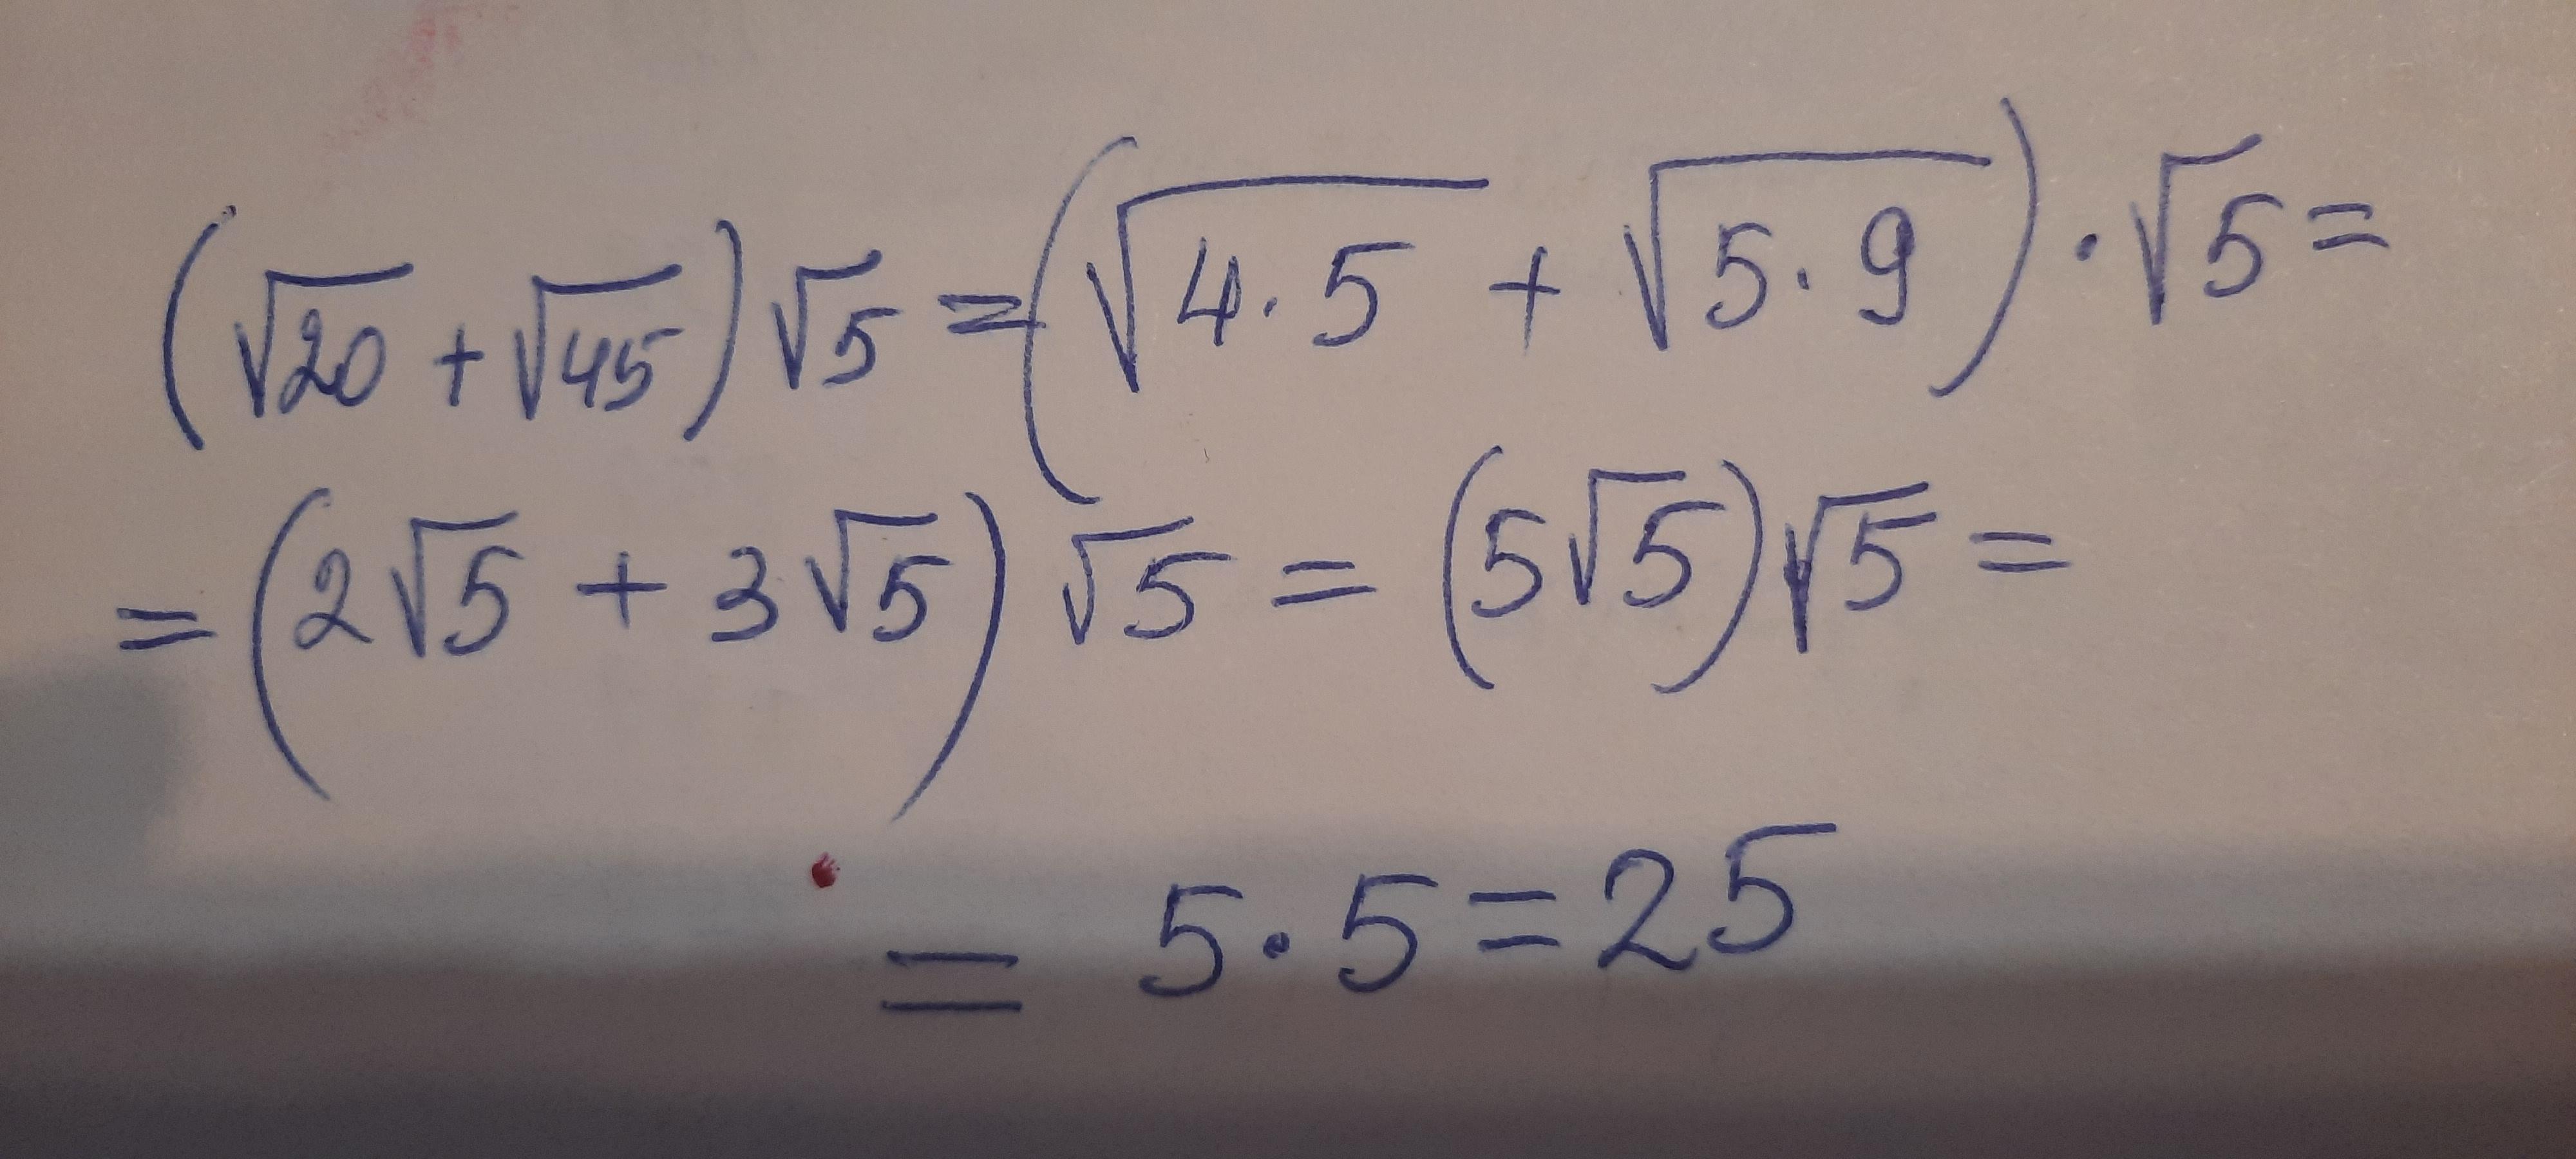 (√20 + √45)√5 = (√4·5 + √5·9)·√5 =
= (2√5 + 3√5)√5 = (5√5)√5 =
= 5·5 = 25